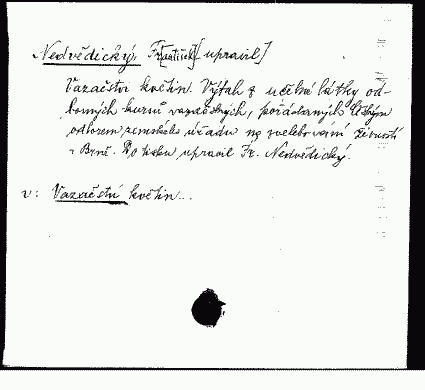 Nedvědický, Fr[antišek] [upravil]
Vazačství květin. Výtah z učebné látky od-
borných kursů vazačských, pořádaných
odborem zemského úřadu na zvelebování živností
v Brně. Do tisku upravil Fr. Nedvědický.
v: Vazačství květin...